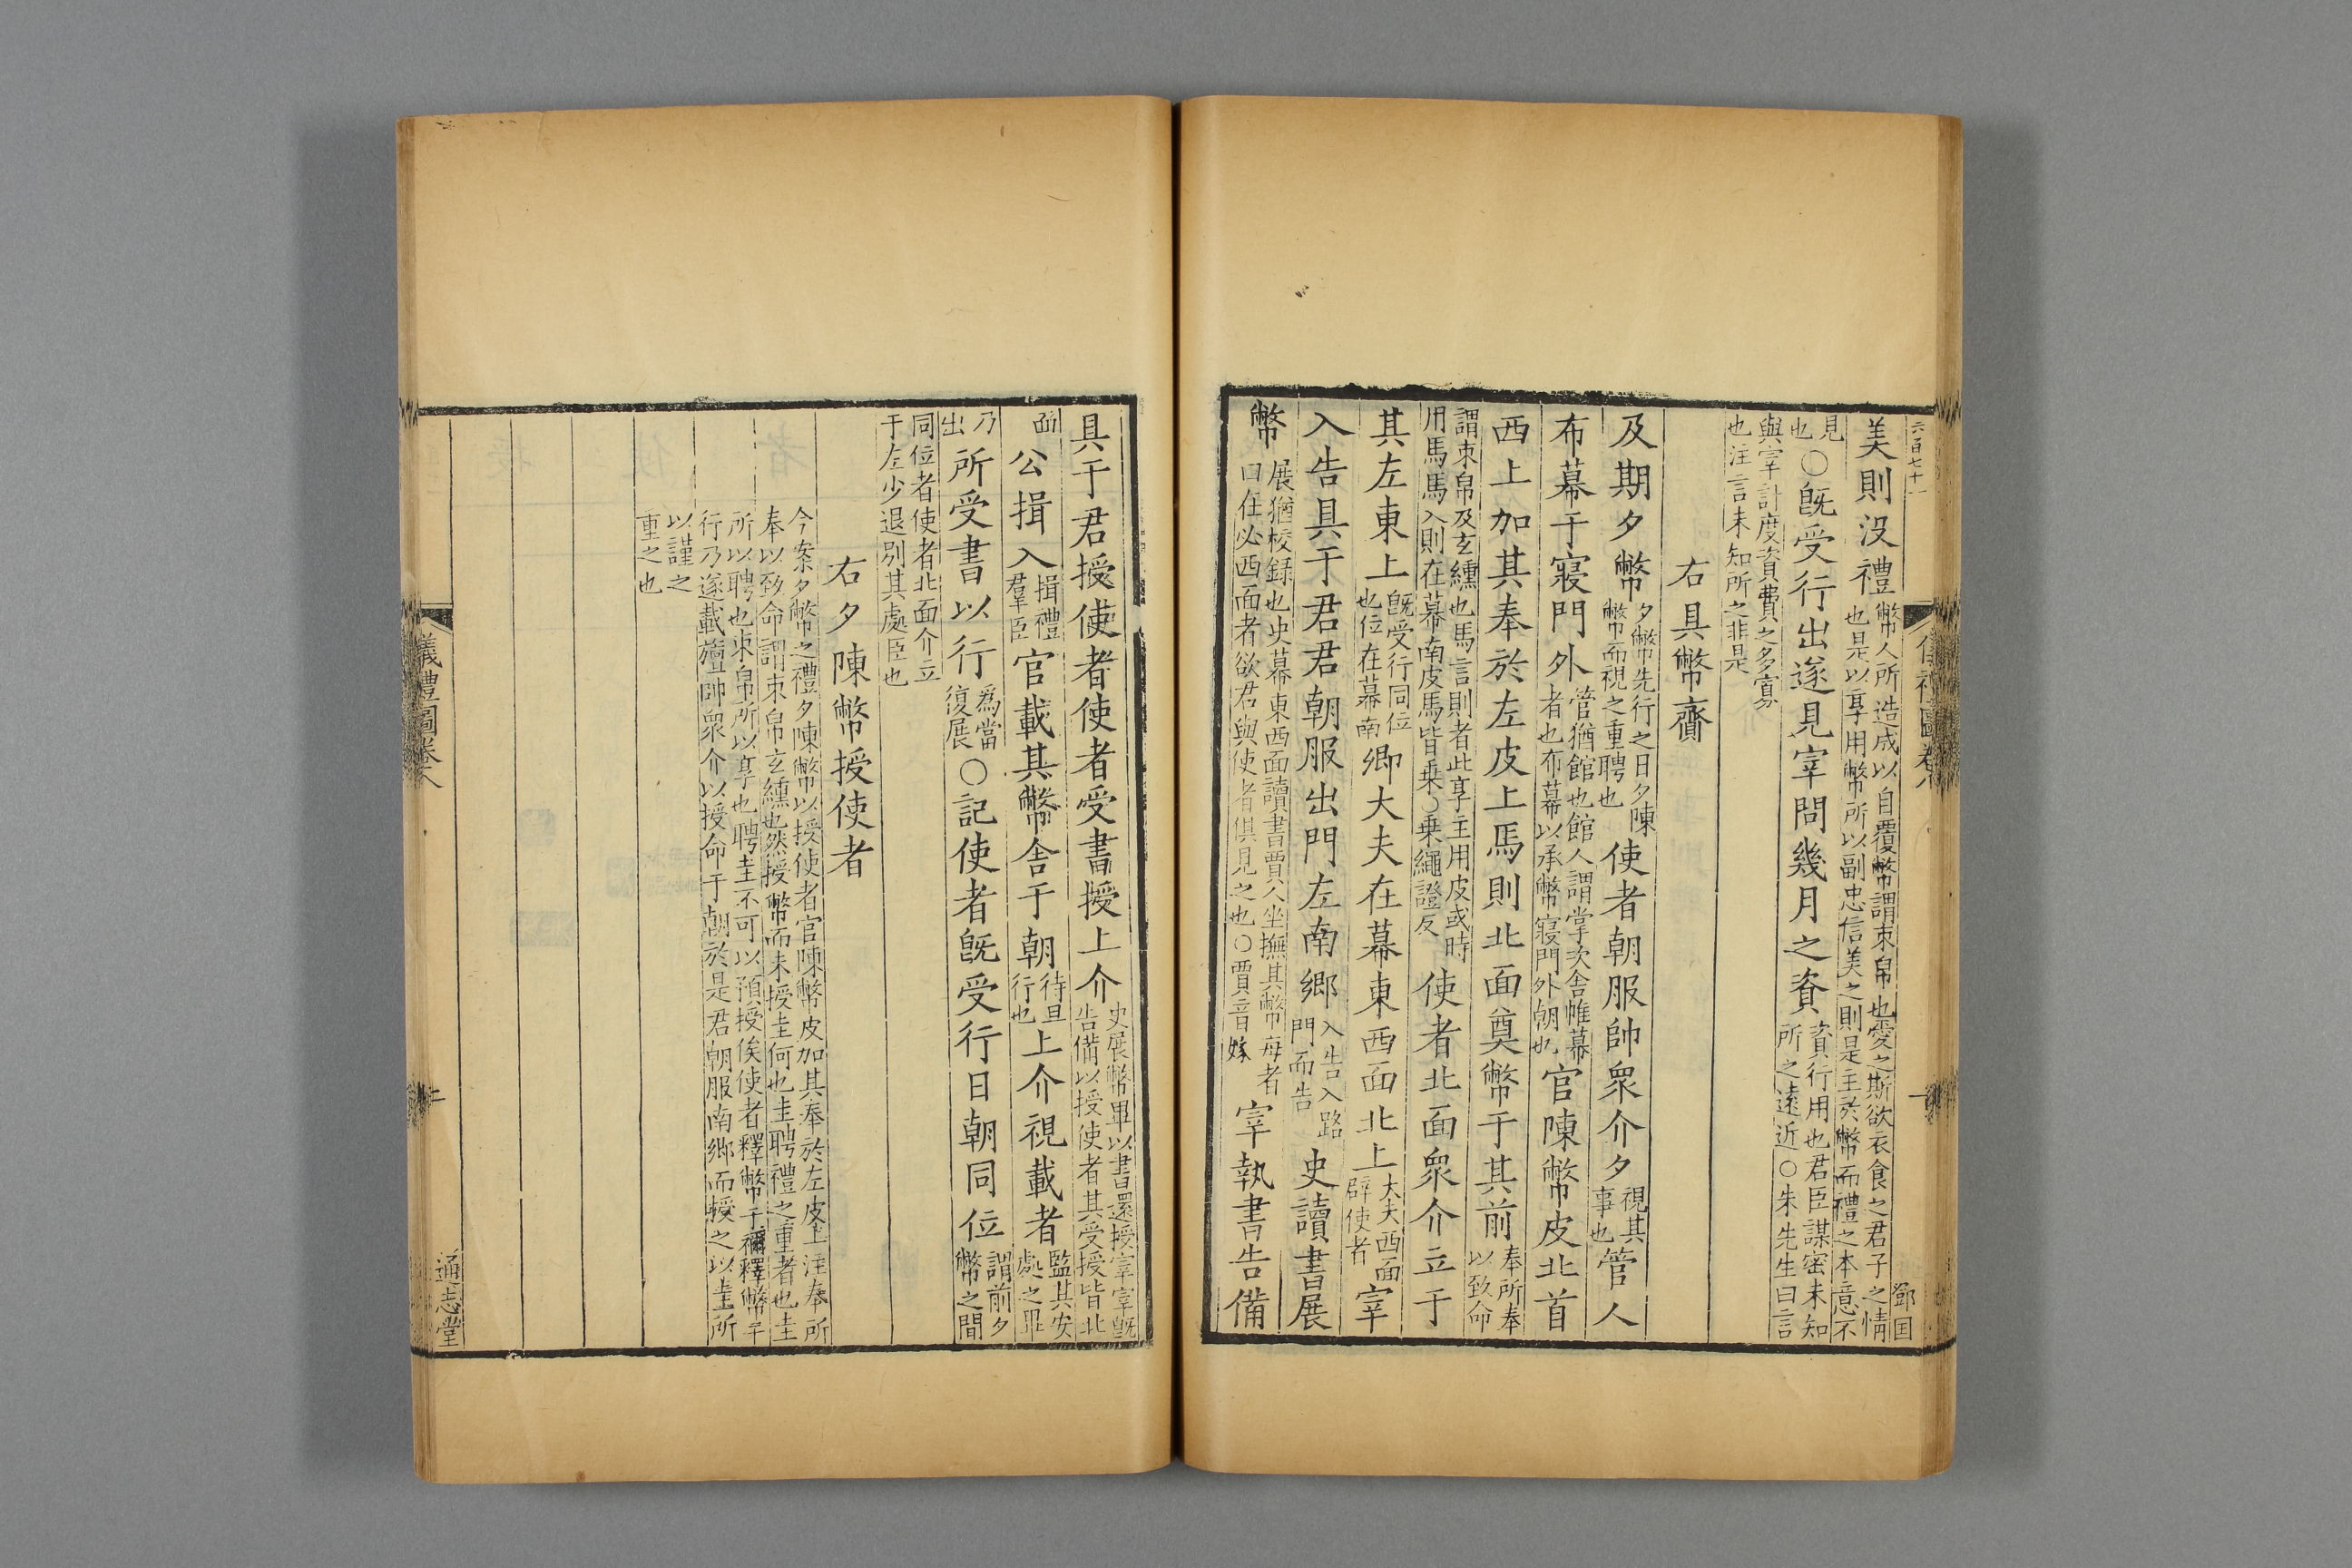 六百七十一
美則没禮幣人所造成以自覆幣謂束帛也愛之斯欲衣食之君子之情
也是以享用幣所以副忠信美之則是主於幣而禮之本意不
見
也○旣受行出遂見宰問幾月之資資行用也君臣謀密未知
所之遠近○朱先生曰言
與宰計度資費之多寡
也注言未知所之非是
右具幣齎
及期夕幣夕幣先行之日夕陳
幣而視之重聘也使者朝服帥衆介夕視其
事也管人
布幕于寢門外管猶館也館人謂掌次舍帷幕
者也布幕以承幣寢門外朝也官陳幣皮北首
西上加其奉於左皮上馬則北面奠幣于其前奉所奉
以致命
謂束帛及玄纁也馬言則者此享主用皮或時
用馬馬入則在幕南皮馬皆乗○乗繩證反使者北面衆介立于
其左東上旣受行同位
也位在幕南卿大夫在幕東西面北上大夫西面
辟使者宰
入告具于君君朝服出門左南鄉入告入路
門而告史讀書展
幣展猶校録也史幕東西面讀書賈人坐撫其幣每者
曰在必西面者欲君與使者俱見之也○賈音嫁宰執書告備
鄧国
具于君授使者使者受書授上介史展幣畢以書還授宰宰旣
告備以授使者其受授皆北
面公揖入揖禮
羣臣官載其幣舍于朝待旦
行也上介視載者監其安
處之畢
乃
出所受書以行爲當
復展○記使者旣受行日朝同位謂前夕
幣之間
同位者使者北面介立
于左少退别其處臣也
右夕陳幣授使者
今案夕幣之禮夕陳幣以授使者官陳幣皮加其奉於左皮上注奉所
奉以致命謂束帛玄纁也然授幣而未授圭何也圭聘禮之重者也圭
所以聘也束帛所以享也聘圭不可以預授俟使者釋幣于禰釋幣于
行乃遂載旜帥衆介以授命于朝於是君朝服南鄉而授之以圭所
以謹之
重之也
儀禮圖卷八
通志堂